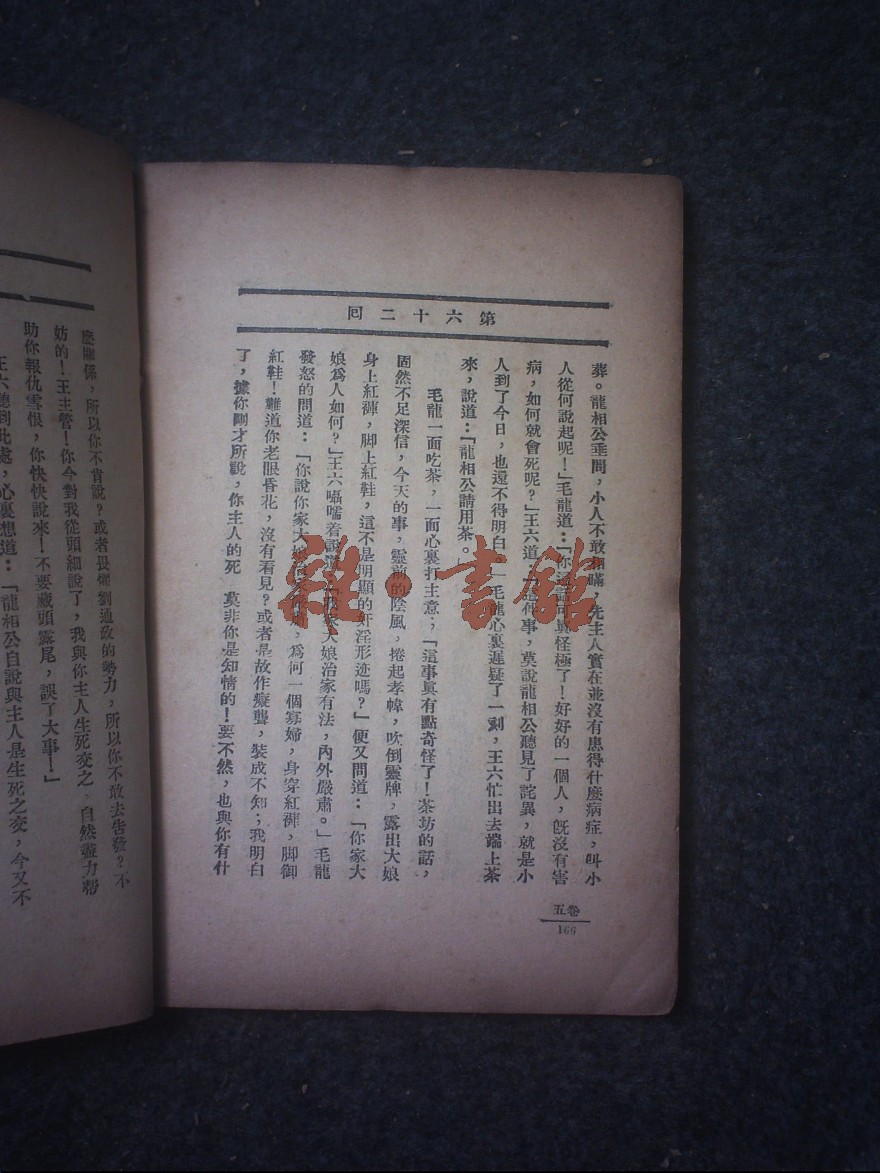 第六十二回
葬。龍相公垂問，小人不敢相瞞，先主人實在並沒有患得什麼病症，叫小
人從何說起呢！」毛龍道：「你這話可眞怪極了！好好的一個人，旣沒有害
病，如何就會死呢？」王六道：「這何事，莫說龍相公聽見了詫異，就是小
人到了今日，也還不得明白。」毛龍心裏遲疑了一刻，王六忙出去端上茶
來，說道：「龍相公請用茶。」
毛龍一面吃茶，一面心裏打主意；「這事眞有點奇怪了！茶坊的話，
固然不足深信，今天的事，靈前的陰風，捲起孝幃，吹倒靈牌，露出大娘
身上紅褲，脚上紅鞋，這不是明顯的奸淫形迹嗎？」便又問道：「你家大
娘爲人如何？」王六囁嚅着說道：「我家大娘治家有法，內外嚴肅。」毛龍
發怒的問道：「你說你家大娘治家有，爲何一個寡婦，身穿紅褲，脚御
紅鞋！難道你老眼昏花，沒有看見？或者是故作癡聾，裝成不知；我明白
了，據你剛才所說，你主人的死 莫非你是知情的！要不然，也與你有什
卷五
166
麽關係，所以你不肯說？或者畏懼劉通政的勢力，所以你不敢去告發？不
妨的！王主管！你今對我從頭細說了，我與你主人生死交之 自然盡力幫
助你報仇雪恨，你快快說來！不要藏頭露尾，誤了大事！」
王六聽到此處，心裏想道：「龍相公自說與主人是生死之交，今又不
雜·書館